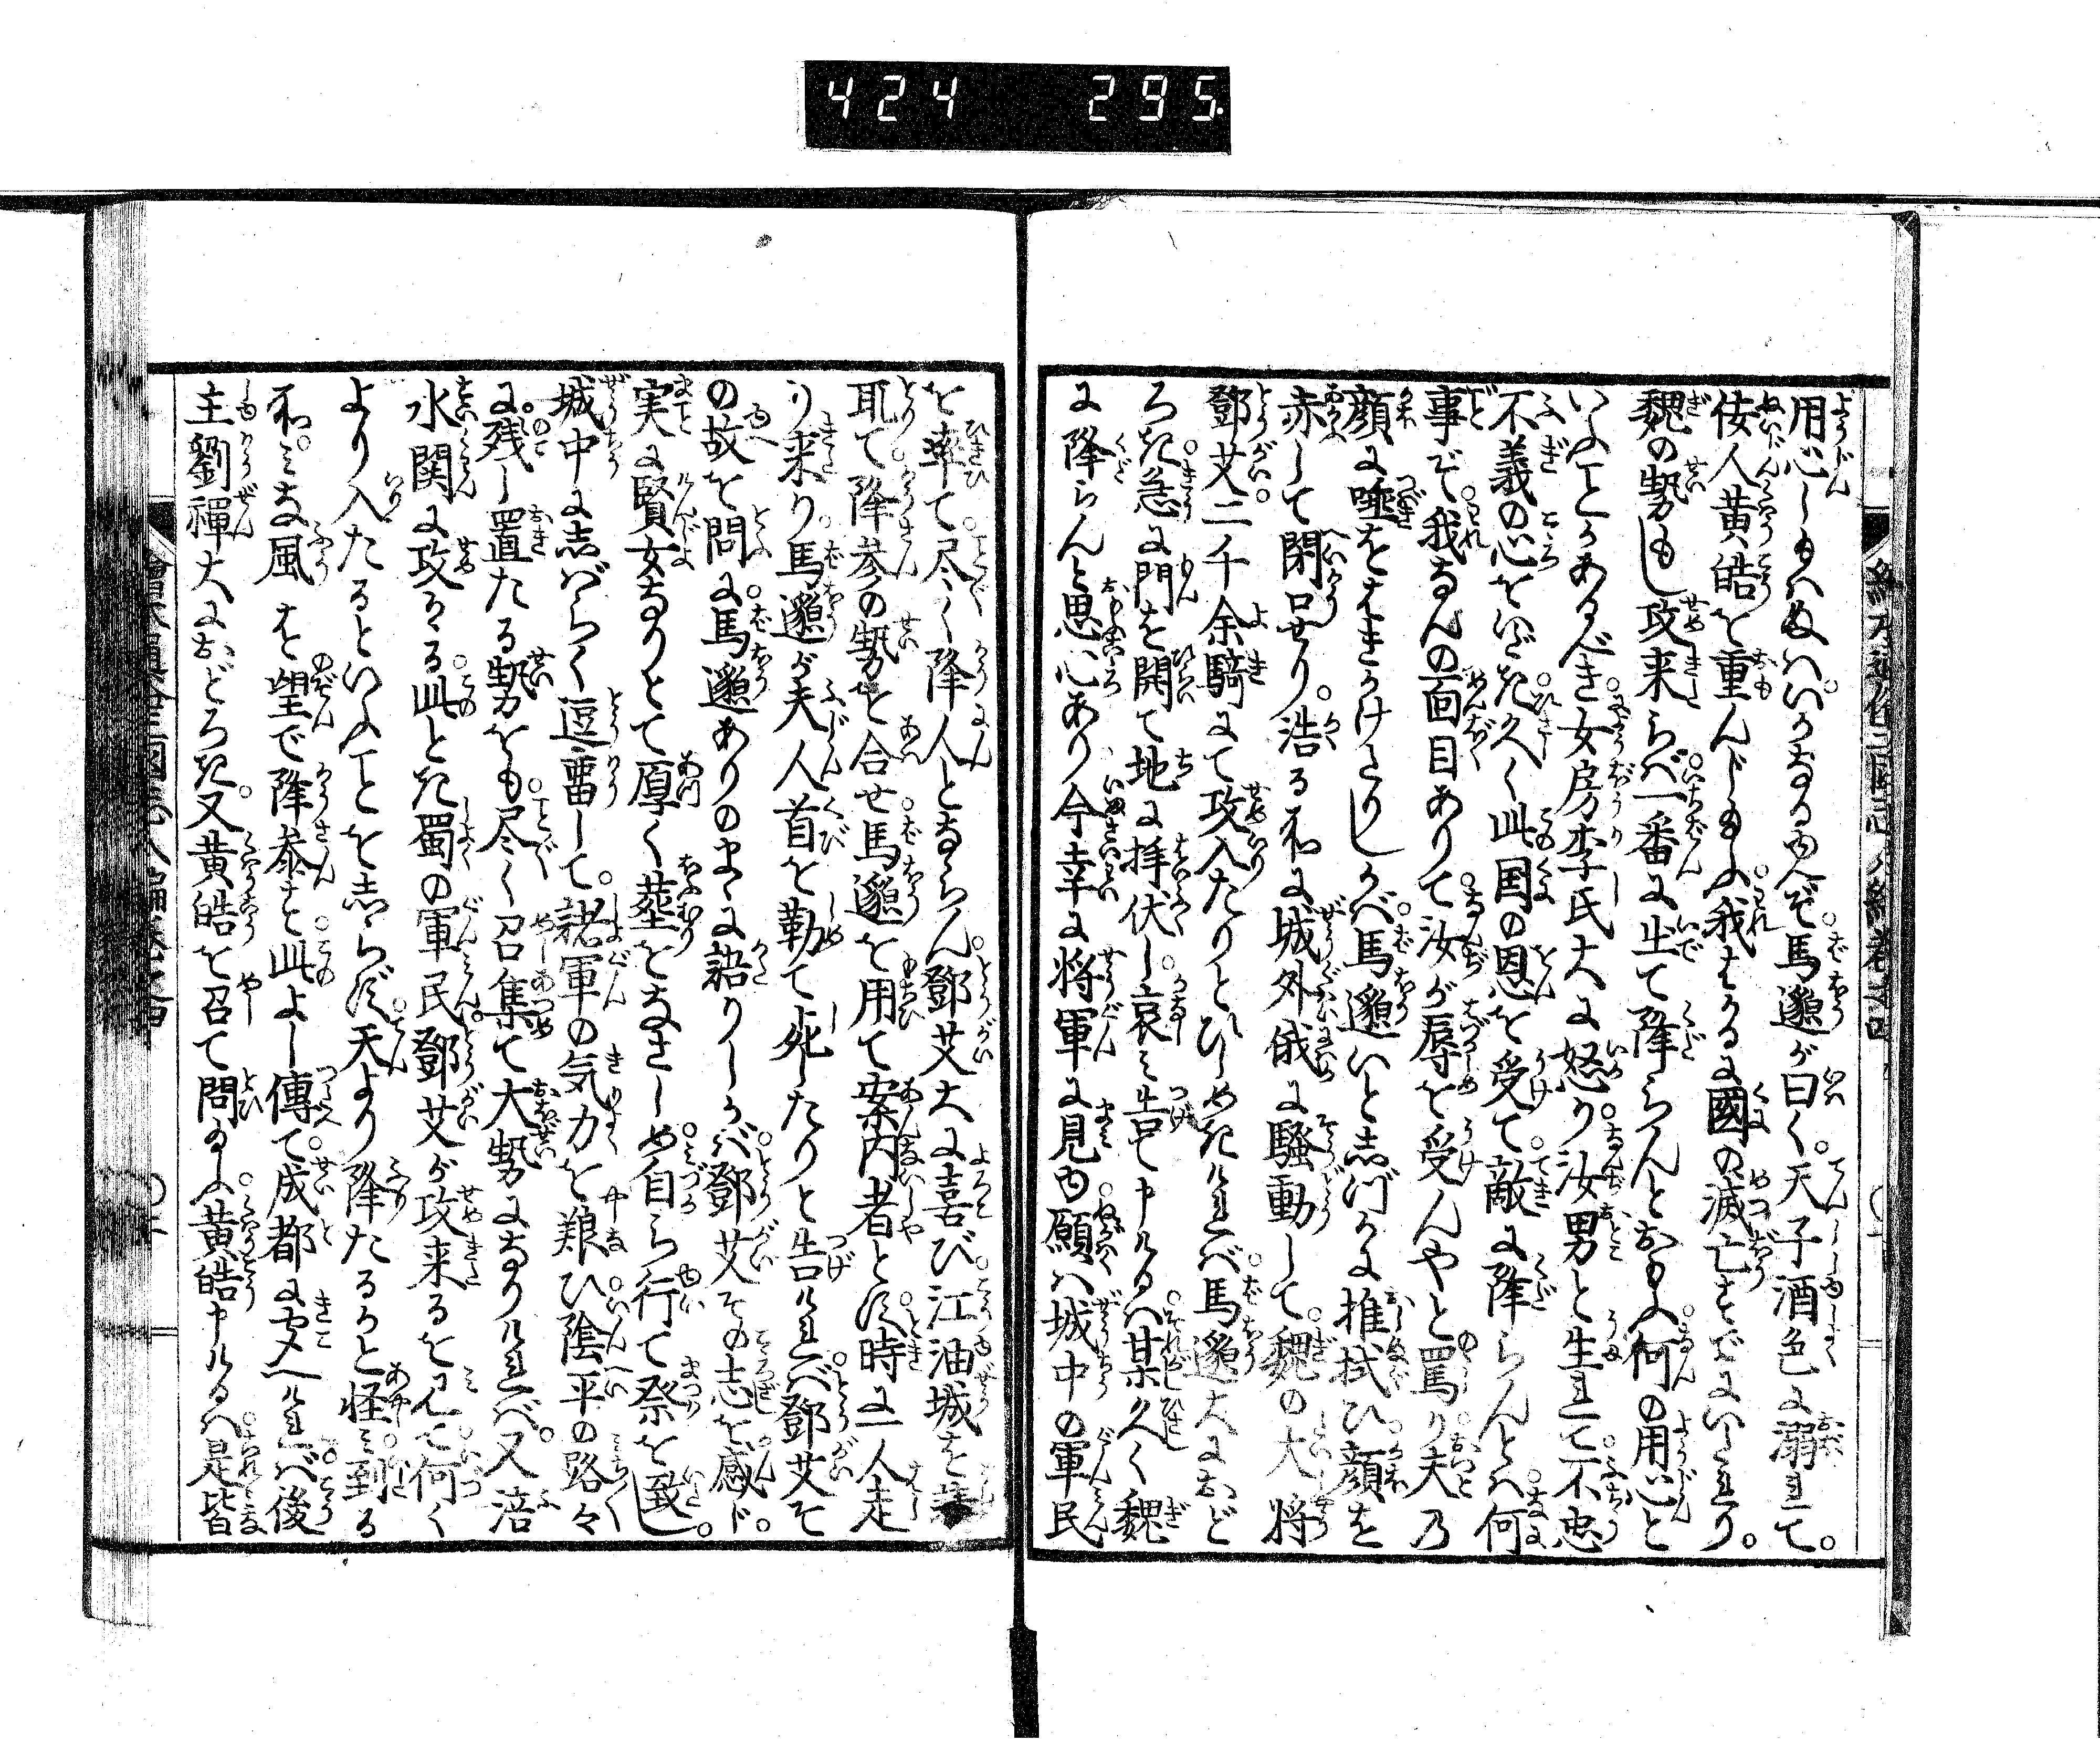 424 295.
用心しもはぬはいかなるゆへぞ馬邈が曰く。天子酒色に溺れて。
佞人黄皓を重んじ玉ふ我はかるに國の滅亡すでにいたれり。
魏の勢もし攻来らば一番に出て降らんとおもふ何の用心と
いふことかあるべき女房李氏大に怒り汝男と生れて不忠
不義の心をいだき久く此国の恩を受て敵に降らんとは何
事ぞ我なんの面目ありて汝が辱を受んやと罵り夫乃
顔に唾をはきかけたりしかば馬邈いと志づかに推拭ひ顔を
赤して閉口せり。浩る和に城外俄に騒動して。魏の大将
鄧艾二千余騎にて攻入たりとひしめきければ馬邈大におど
ろき急に門を開て地に拝伏し哀み告て申けるは某久く魏
に降らんと思心あり今幸に将軍に見ゆ願は城中の軍民
を率て尽く降人とならん鄧艾大に喜び江油城を
取て降参の勢を合せ馬邈を用て案内者とす時に一人走
り来り馬邈が夫人首を勒て死したりと告ければ鄧艾そ
の故を問に馬邈ありのまゝに語りしかば鄧艾その志を感じ。
実に賢女なりとて厚く葬をなさしめ自ら行て祭を致し。
城中に志ばらく逗畱して。諸軍の気力を養ひ陰平の路々
に残し置たる勢をも尽く召集て大勢になりければ。又涪
水関に攻ける此とき蜀の軍民鄧艾が攻来るを見て何く
より入たるといふことを志らず天より降たるかと怪み到る
和みな風を望で降参す此よし傳て成都に聞へければ後
主劉禪大におどろき又黄皓を召て問玉ふ黄皓申けるは是皆